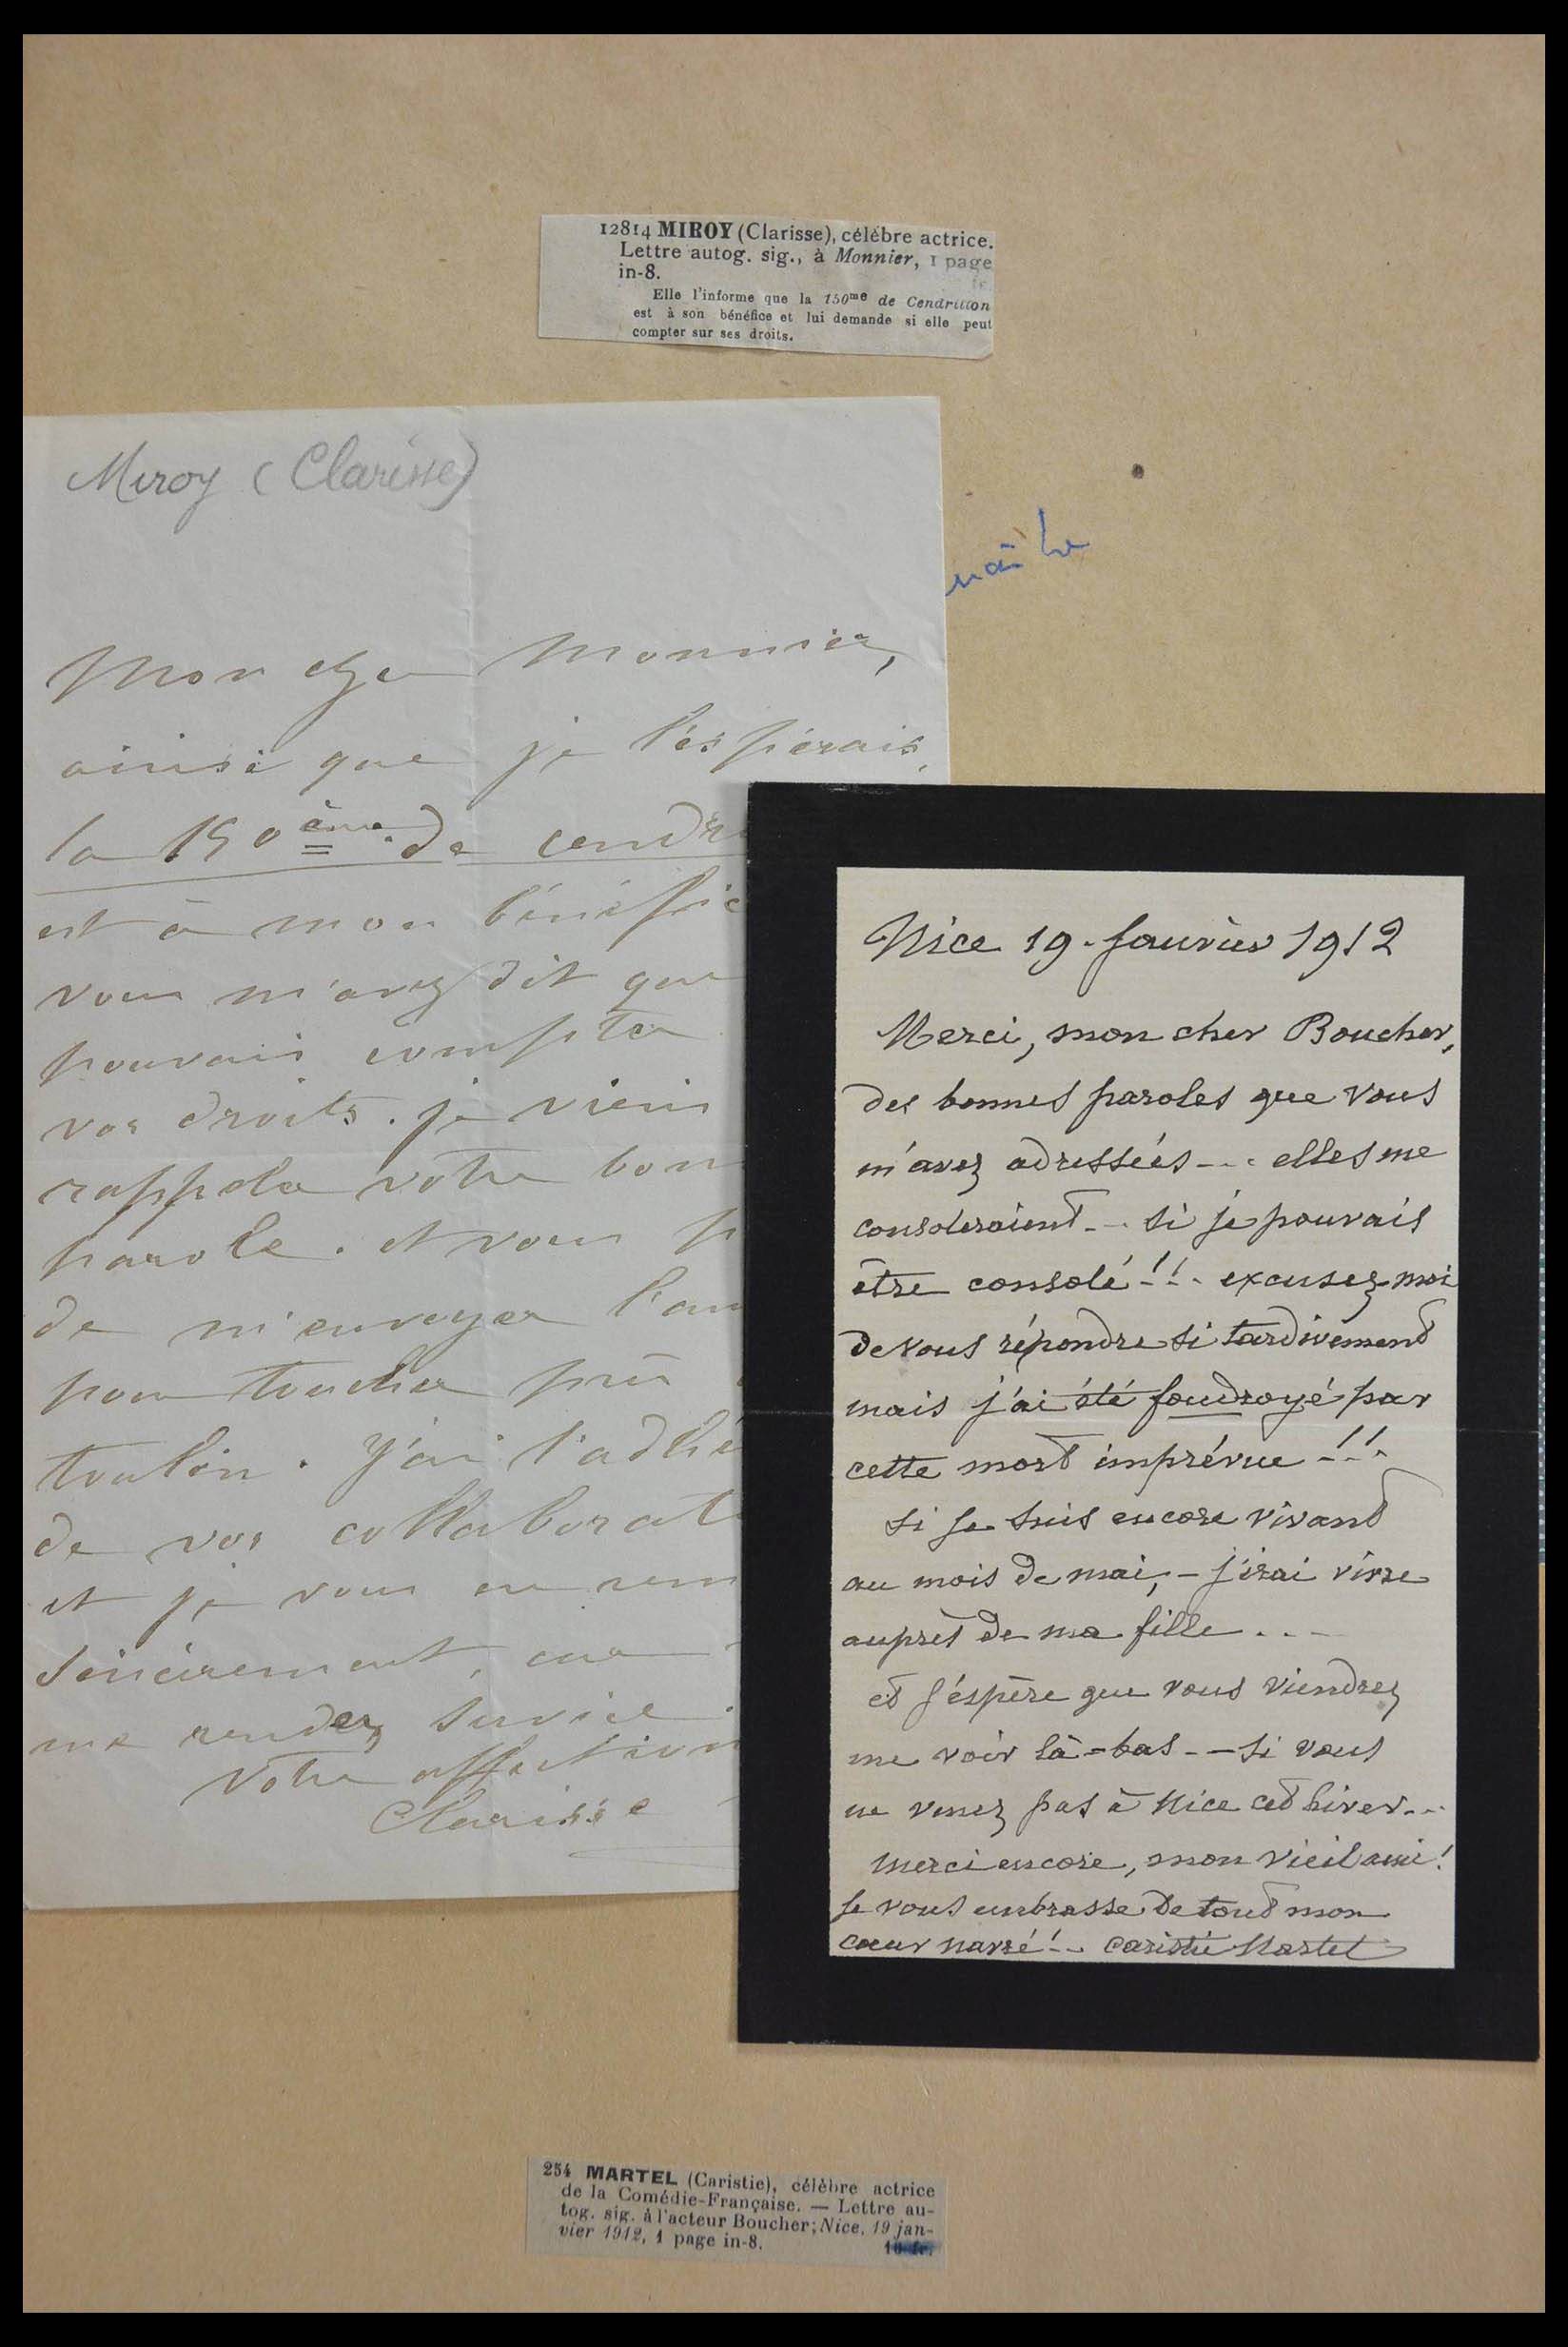 12814 MIROY (Clarisse), célèbre actrice.
Lettre autog. sig., à Monnier, 1 page
in-8.
Elle l'informe que la 150me de Cendrillon
est à son bénéfice et lui demande si elle peut
compter sur ses droits.
Miroy (Clarisse)
Mon cher Monnier,
ainsi que je l'espérais,
la 150ème de cendr
est à mon bénéfic
vous m'avez dit que
pouvais compter
vos droits. je viens
rappeler votre bon
parole. et vous p
de m'envoyer l'au
pour toucher
toulon. J'ai l'adhé
de vos collaborat
et je vous en rem
sincèrement, car
me rendez service.
Votre affection
Clarisse
Nice 19 - Janvier 1912
Merci, mon cher Boucher,
des bonnes paroles que vous
m'avez adressées - . . elles me
consoleraient - . . si je pouvais
être consolé !!! - excusez-moi
de vous répondre si tardivement
mais j'ai été foudroyé par
cette mort imprévue - !!.
Si je suis encore vivant
au mois de mai, - j'irai vivre
auprès de ma fille . . -
et j'espère que vous viendrez
me voir là-bas - - si vous
ne venez pas à Nice cet hiver - ..
Merci encore, mon vieil ami !
Je vous embrasse de tout mon
cœur navré ! - . Caristie Martel
254 MARTEL (Caristie), célèbre actrice
de la Comédie-Française. — Lettre au-
tog. sig. à l'acteur Boucher; Nice, 19 jan-
vier 1912, 1 page in-8. 10 fr.